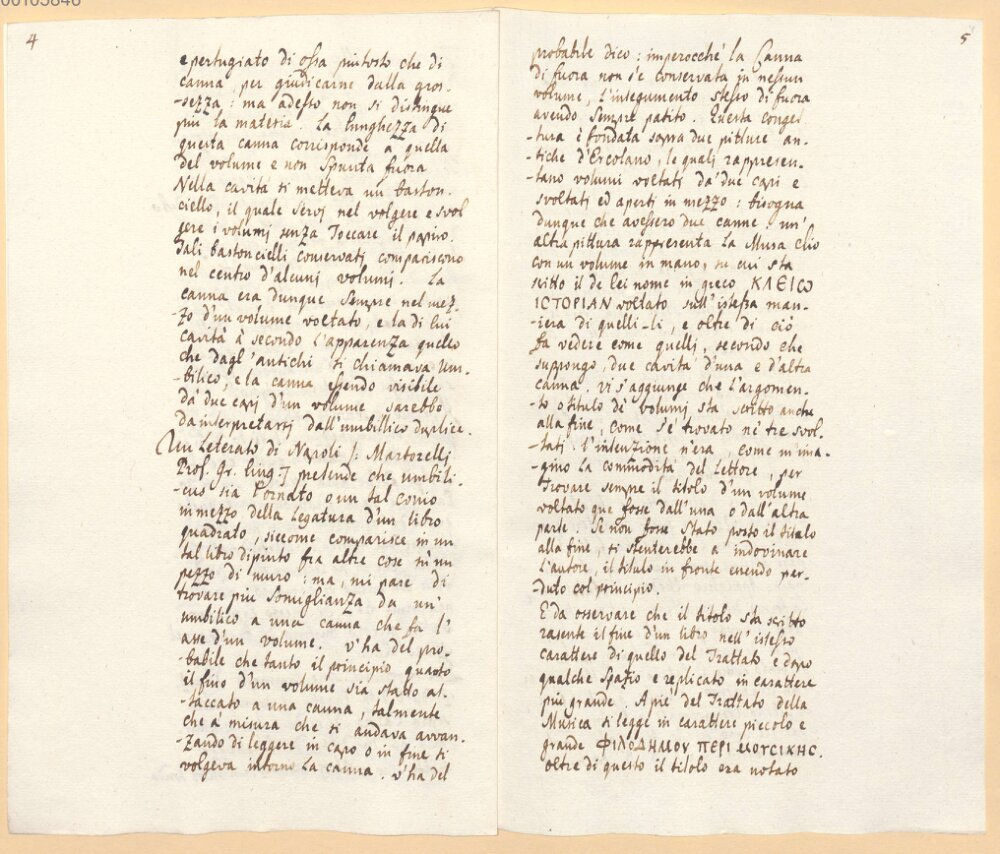 00105846
4
e pertugiato di ossa piuttosto che di
canna, per giudicarne dalla gros-
-sezza: ma adesso non si distingue
più la materia. La lunghezza di
questa canna corrisponde a quella
del volume e non spunta fuora
Nella cavità si metteva un baston-
ciello, il quale servj nel volgere e svol
gere i volumj senza toccare il papiro.
Tali bastoncielli conservatj compariscono
nel centro d'alcunj volumj. La
canna era dunque sempre nel mez-
-zo d'un volume voltato, e la di lui
cavità è secondo l'apparenza quello
che dagl'antichi si chiamava um-
-bilico, e la canna essendo visibile
da due capj d'un volume sarebbe
da interpretarsj dall'umbillico duplice.
Un Leterato di Napoli /: Martorellj
Prof. gr. ling :/ pretende che umbili-
-cus sia l'ornato o un tal conio
in mezzo della legatura d'un libro
quadrato, siccome comparisce in un
tal libro dipinto fra altre cose in un
pezzo di muro: ma, mi pare di
trovare più somiglianza da un'
umbilico a una canna che fa l'
asse d'un volume. v'ha del pro-
-babile che tanto il principio quanto
il fino d'un volume sia stato at-
-taccato a una canna, talmente
che a misura che si andava avvan-
-zando di leggere in capo o in fine si
volgeva intorno la canna. v'ha del
5
probabile dico: imperocché la Canna
di fuora non s'è conservata in nessun
volume, l'insegumento stesso di fuora
avendo sempre patito. Questa conget
-tura è fondata sopra due pitture an-
-tiche d'Ercolano, le qualj rappresen-
-tano volumi voltatj da due capi e
svoltati ed aperti in mezzo: bisogna
dunque che avessero due canne. un'
altra pittura rappresenta la Musa Clio
con un volume in mano, su cui sta
scitto il de lei nome in greco ΚΛΕΙⲰ
ΙϹΤΟΡΙΑΝ voltato sull'istessa man-
-iera di quelli-li, e oltre di ciò
fa vedere come quellj, secondo che
suppongo, due cavità d'una e d'altra
canna, vi s'aggiunge che l'argomen-
-to o titulo de' volumj sta scritto anche
alla fine, come s'è trovato ne' tre svol-
-tati. l'intenzione n'era, come m'ima-
-gino la commodità del lettore, per
trovare sempre il titolo d'un volume
voltato que fosse dall'una o dall'altra
parte. Se non fosse stato posto il titulo
alla fine, si stenterebbe a indovinare
l'autore, il titulo in fronte enendo per-
-duto col principio.
E da osservare che il titolo sta scitto
rasente il fine d'un libro nell'istesso
carattere di quello del Trattato e dopo
qualche spazio e replicato in carattere
più grande. A piè del Trattato della
Musica si legge in carattere piccolo e
grande ΦΙΛΟΔΗΜΟΥ ΠΕΡΙ ΜΟΥϹΙΚΗϹ.
oltre di questo il titolo era notato